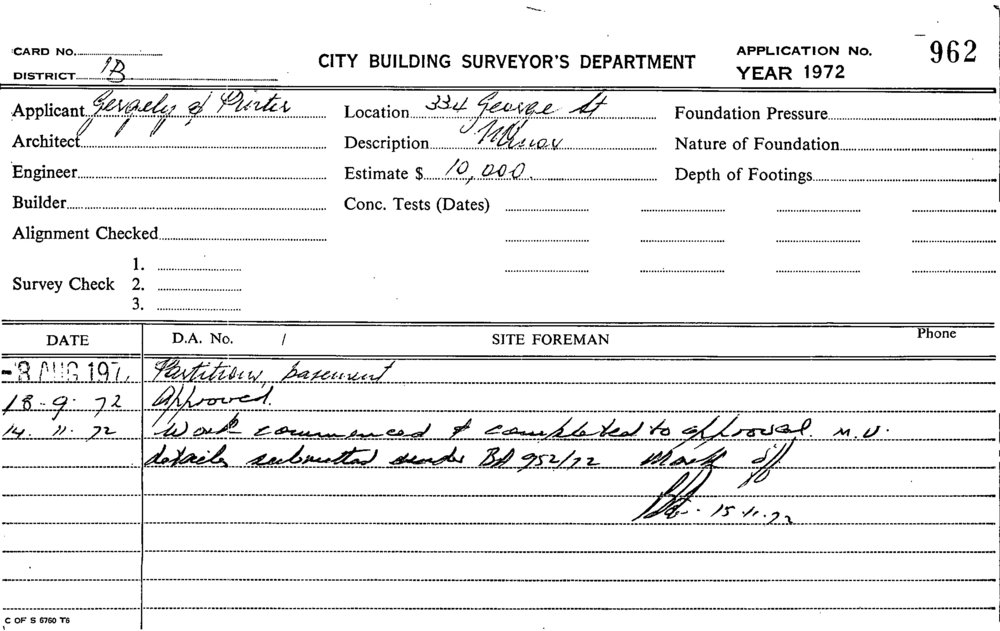 CARD No.
DISTRICT 1B
CITY BUILDING SURVEYOR'S DEPARTMENT
APPLICATION No. 962
YEAR 1972
Applicant Gergely & Pinter
Location 334 George St
Foundation Pressure
Architect
Description Minor
Nature of Foundation
Engineer
Estimate $ 10,000.
Depth of Footings
Builder
Conc. Tests (Dates)
Alignment Checked
1.
Survey Check 2.
3.
DATE D.A. No. / SITE FOREMAN Phone
-8 AUG 197 Partitions, basement
18-9-72 Approved.
14.11.72 Work commenced & completed to approval. M.V.
details submitted under BA 952/72 Mark off
15.11.72
C OF S 6760 T6